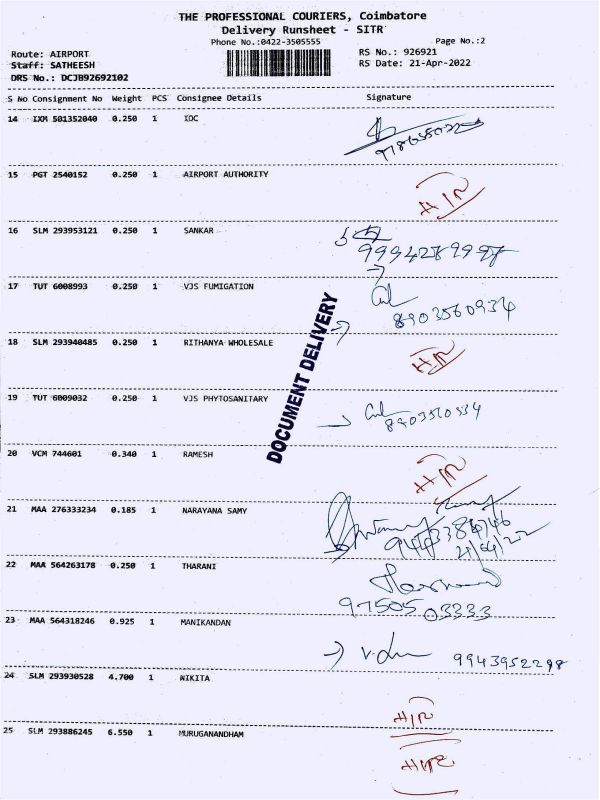 THE PROFESSIONAL COURIERS, Coimbatore
Delivery Runsheet - SITR
Phone No.:0422-3505555 Page No.:2
Route: AIRPORT RS No.: 926921
Staff: SATHEESH RS Date: 21-Apr-2022
DRS No.: DCJB92692102
S No Consignment No Weight PCS Consignee Details Signature
14 IXM 501352040 0.250 1 IOC
15 PGT 2540152 0.250 1 AIRPORT AUTHORITY
H/R
16 SLM 293953121 0.250 1 SANKAR
17 TUT 6008993 0.250 1 VJS FUMIGATION
8903560934
DOCUMENT DELIVERY
18 SLM 293940485 0.250 1 RITHANYA WHOLESALE
H/R
19 TUT 6009032 0.250 1 VJS PHYTOSANITARY
20 VCM 744601 0.340 1 RAMESH
H/R
21 MAA 276333234 0.185 1 NARAYANA SAMY
22 MAA 564263178 0.250 1 THARANI
97505 03333
23 MAA 564318246 0.925 1 MANIKANDAN
9943952298
24 SLM 293930528 4.700 1 NIKITA
H/R
25 SLM 293886245 6.550 1 MURUGANANDHAM